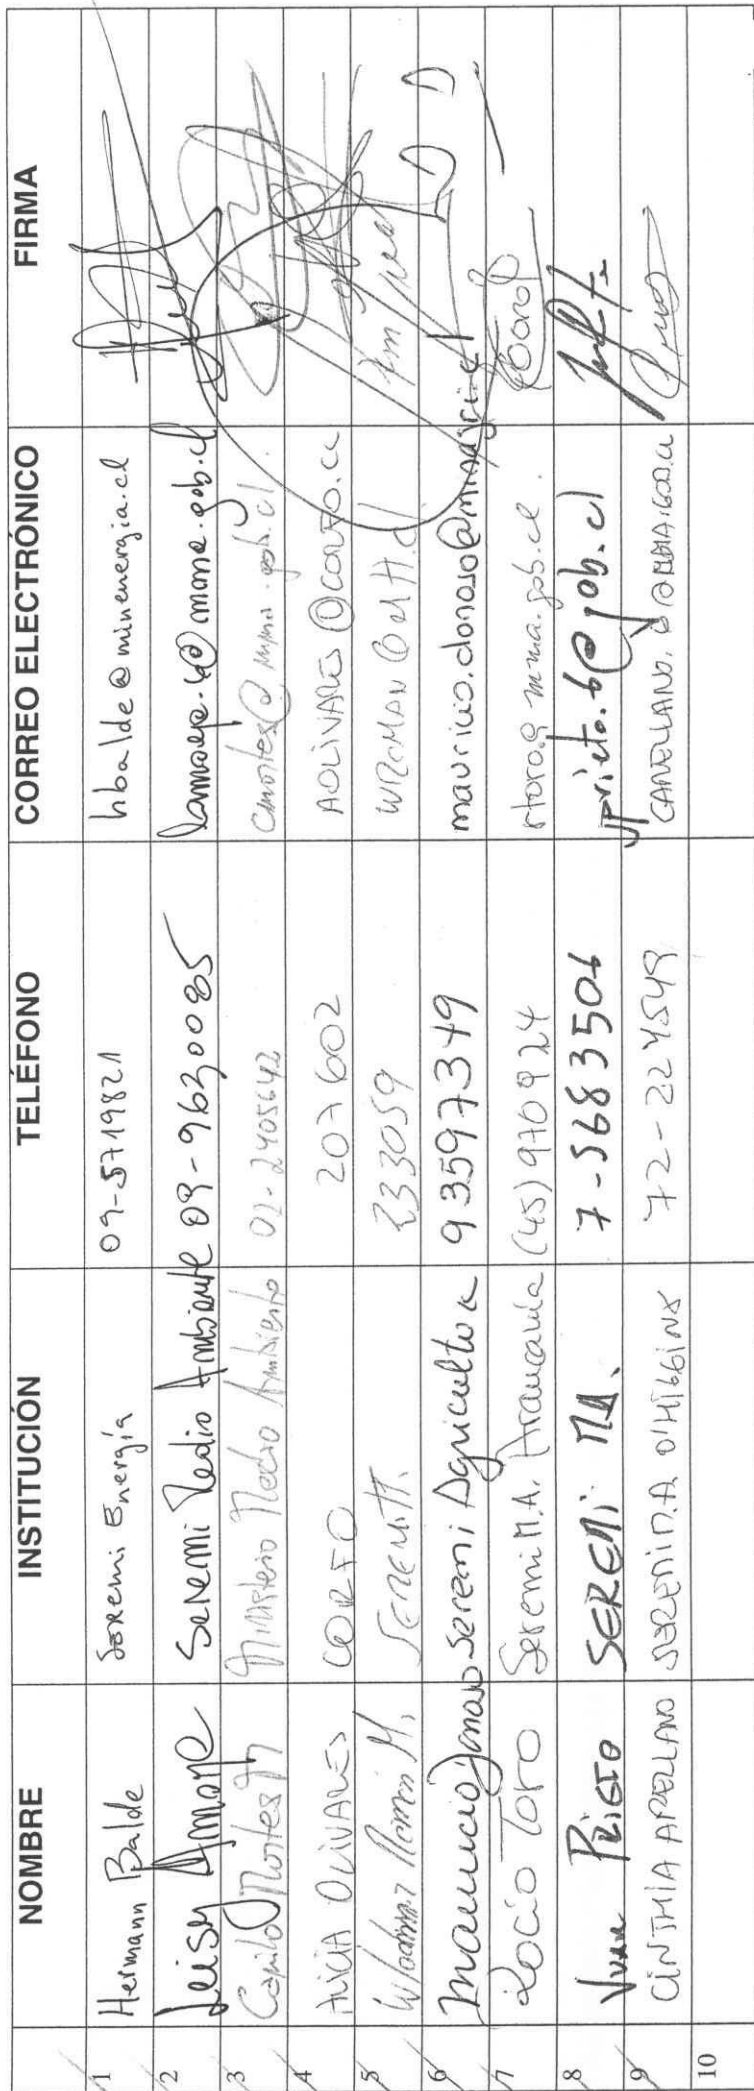 NOMBRE INSTITUCIÓN TELÉFONO CORREO ELECTRÓNICO FIRMA
1 Hermann Balde Seremi Energía 09-5719821 hbalde@minenergia.cl
2 Leisy Amaya Seremi Medio Ambiente 09-96300085
3 Camilo Montes Ministerio Medio Ambiente 02-2405642
4 ALICIA OLIVARES CORFO 207602 AOLIVARES@CORFO.CL
5 Román M. 233059
6 Mauricio Donoso Seremi Agricultura 93597349 mauricio.donoso@minagri.cl
7 Rocío Toro Seremi M.A. Araucanía (45) 970924 rtoro@mma.gob.cl
8 Juan Prieto SEREMI MA. 7-5683506 jprieto.6@gob.cl
9 CINTHIA ARELLANO SEREMI M.A O'HIGGINS 72-224549
10